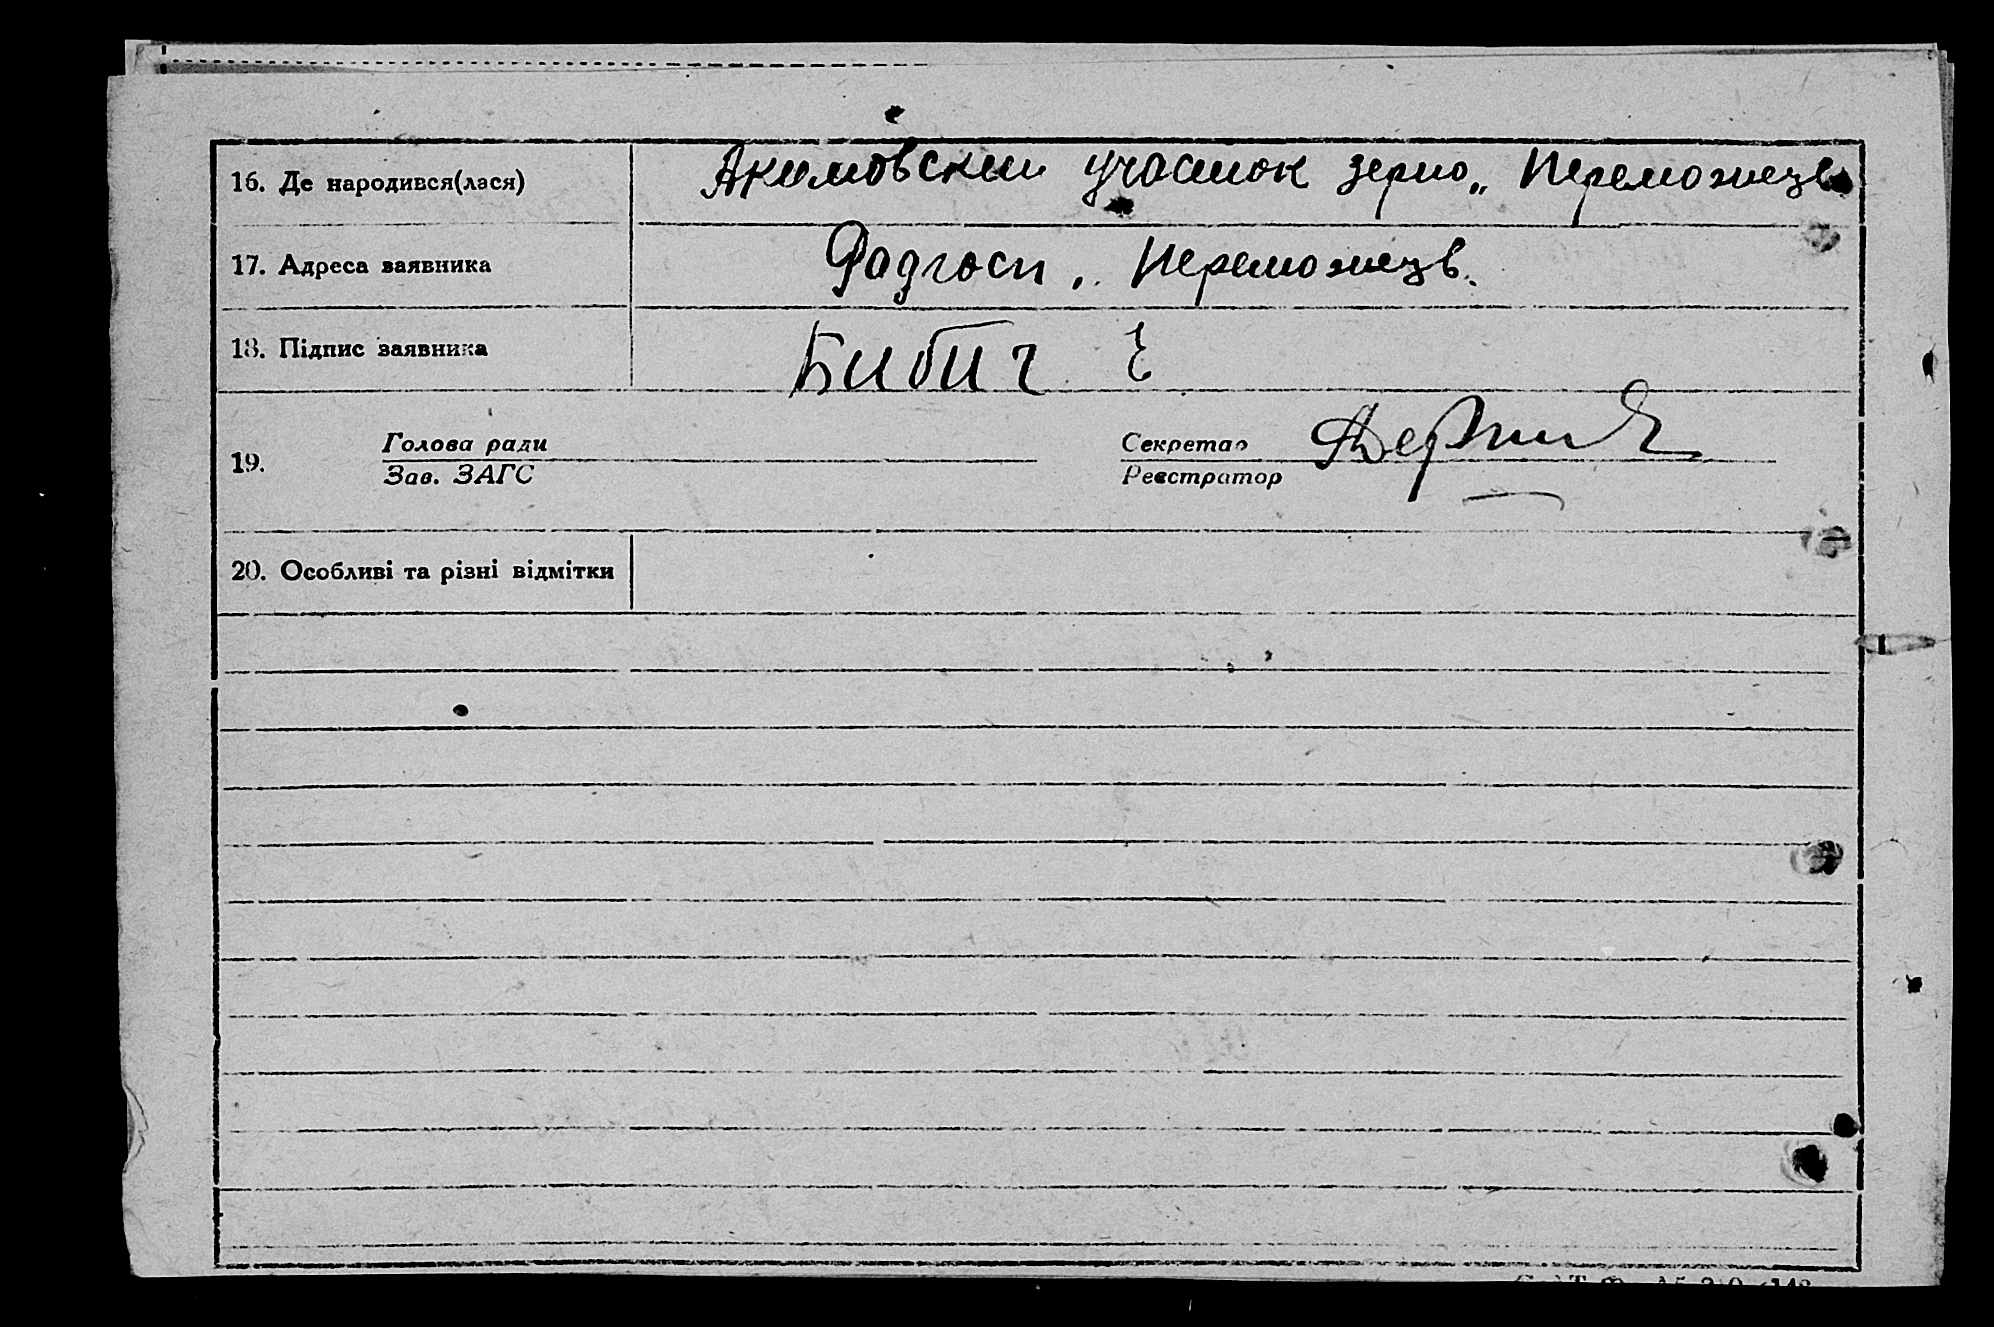 16. Де народився(лася) Акимовский участок зерно „Переможець
17. Адреса заявника Радгосп „Переможець.
18. Підпис заявника Бибич
19. Голова ради Секретар
Зав. ЗАГС Реєстратор
20. Особливі та різні відмітки